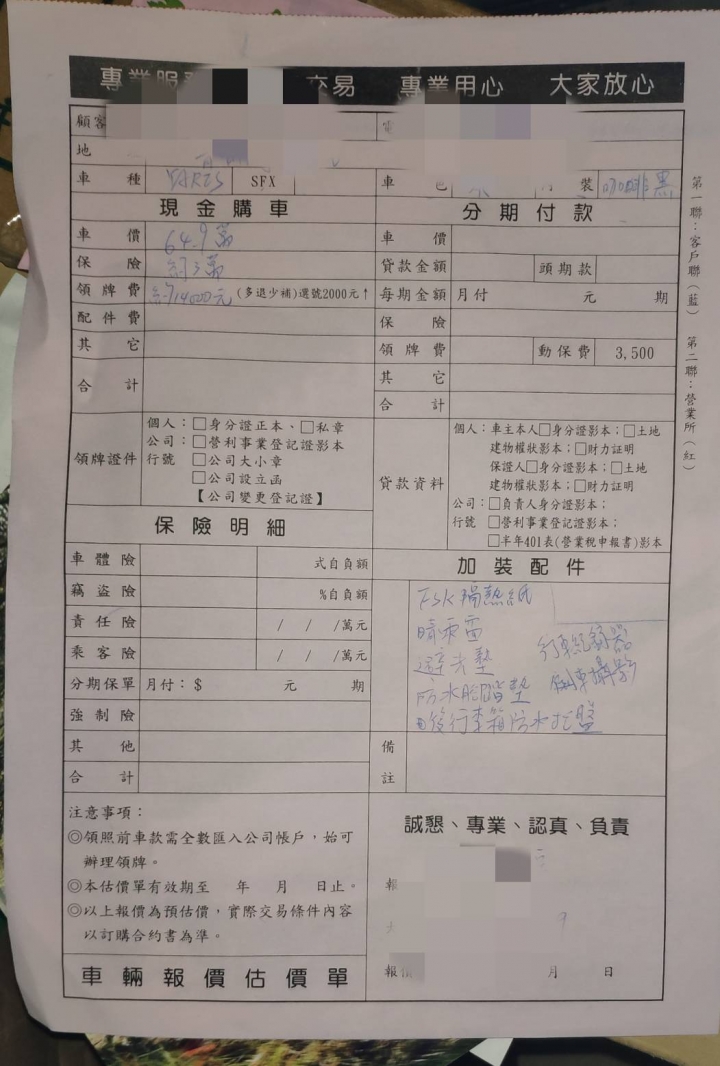 專業服 交易 專業用心 大家放心
顧客
地
車種 YARIS SFX 車色 裝 咖啡黑
現金購車 分期付款
車價 64.9萬 車價
保險 約3萬 貸款金額 頭期款
領牌費 約14000元 (多退少補)選號2000元↑ 每期金額 月付 元 期
配件費 保險
其它 領牌費 動保費 3,500
合計 其它
合計
領牌證件
個人：□身分證正本、□私章
公司：□營利事業登記證影本
行號 □公司大小章
□公司設立函
【公司變更登記證】
貸款資料
個人：車主本人□身分證影本；□土地
建物權狀影本；□財力証明
保證人□身分證影本；□土地
建物權狀影本；□財力証明
公司：□負責人身分證影本；
行號 □營利事業登記證影本；
□半年401表(營業稅申報書)影本
保險明細
車體險 式自負額
竊盜險 %自負額
責任險 / / /萬元
乘客險 / / /萬元
分期保單 月付：$ 元 期
強制險
其他
合計
加裝配件
FSK隔熱紙
晴雨窗 行車紀錄器
避光墊 倒車攝影
防水腳踏墊
後行李箱防水托盤
備註
注意事項：
◎領照前車款需全數匯入公司帳戶，始可
辦理領牌。
◎本估價單有效期至 年 月 日止。
◎以上報價為預估價，實際交易條件內容
以訂購合約書為準。
車輛報價估價單
誠懇、專業、認真、負責
報
9
報價 月 日
第一聯：客戶聯(藍) 第二聯：營業所(紅)